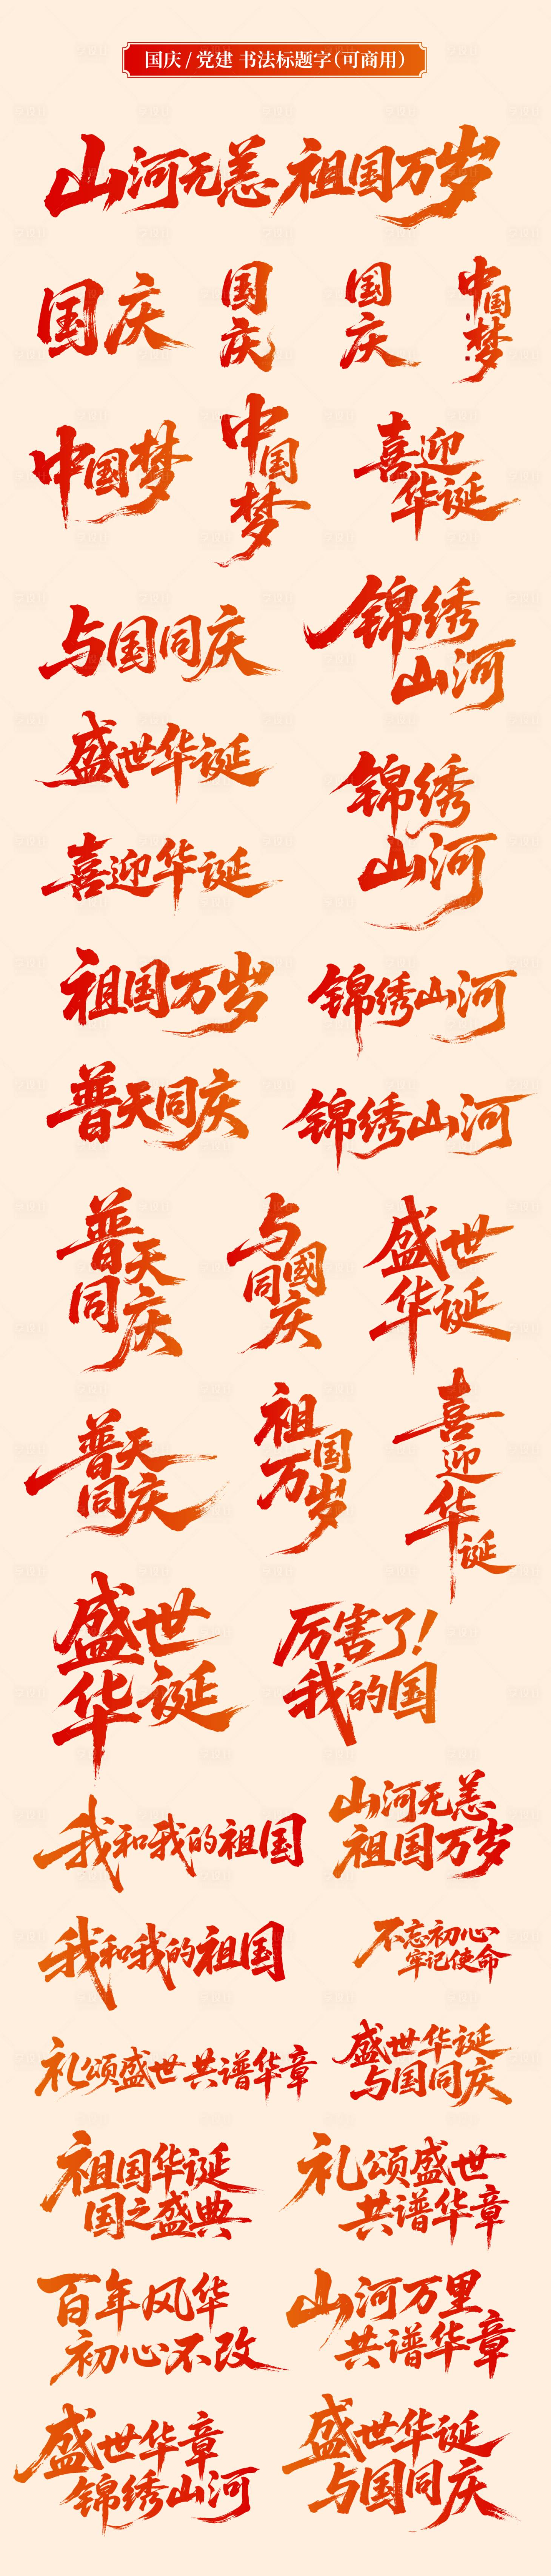 国庆 / 党建 书法标题字（可商用）
山河无恙 祖国万岁
国庆
国
庆
国
庆
中
国
梦
中国梦
中
国
梦
喜迎
华诞
与国同庆
锦绣
山河
盛世华诞
锦绣
山河
喜迎华诞
祖国万岁
锦绣山河
普天同庆
锦绣山河
普天
同庆
与國
同庆
盛世
华诞
普天
同庆
祖国
万岁
喜
迎
华
诞
盛世
华诞
厉害了!
我的国
我和我的祖国
山河无恙
祖国万岁
我和我的祖国
不忘初心
牢记使命
礼颂盛世 共谱华章
盛世华诞
与国同庆
祖国华诞
国之盛典
礼颂盛世
共谱华章
百年风华
初心不改
山河万里
共谱华章
盛世华章
锦绣山河
盛世华诞
与国同庆